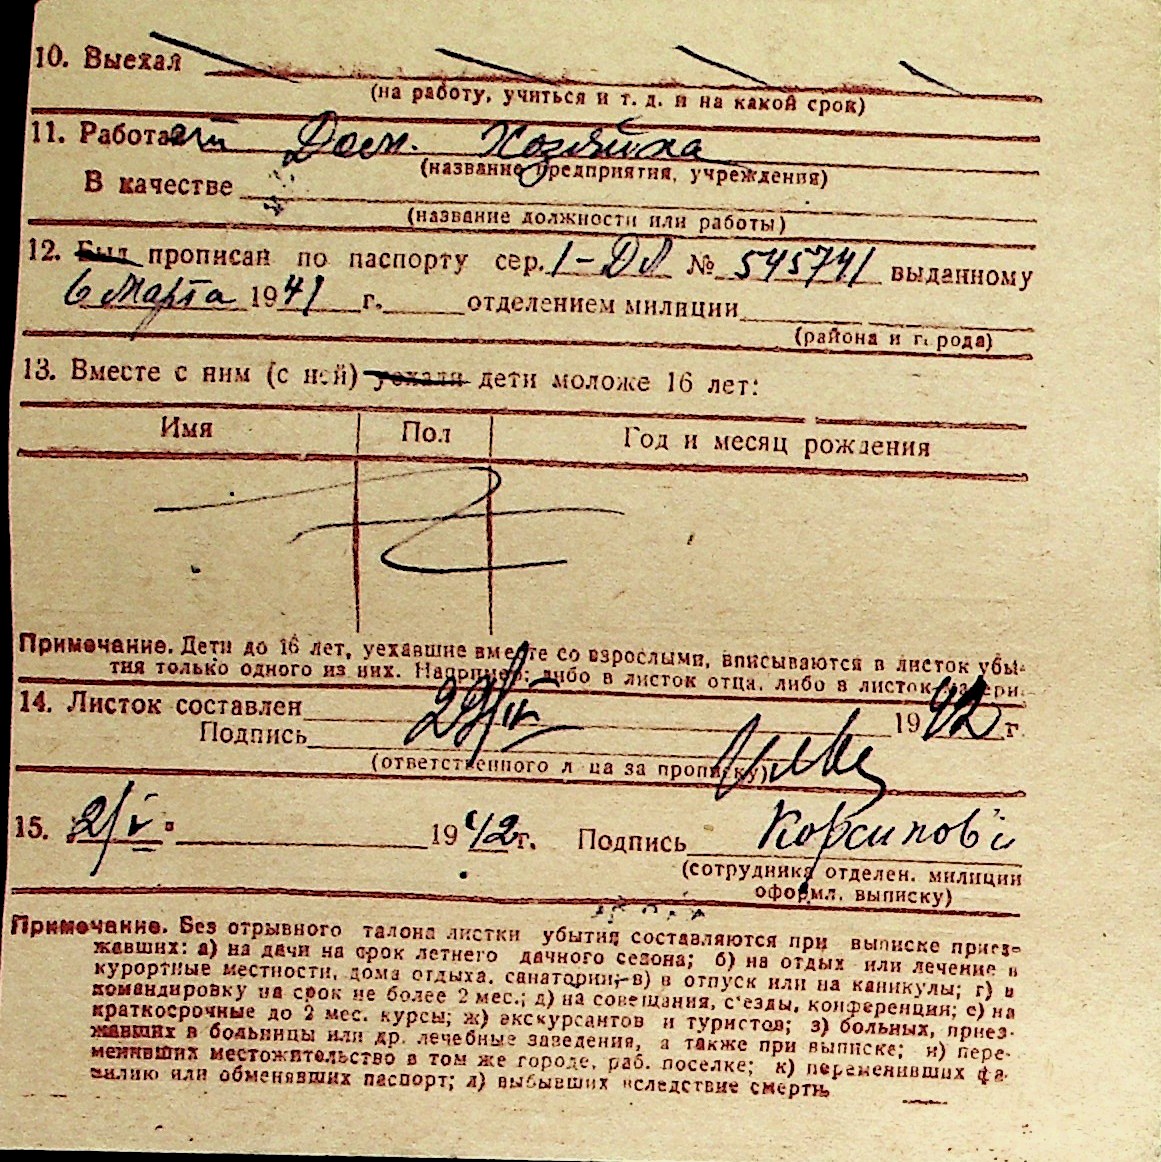 10. Выехал
(на работу, учиться и т. д. и на какой срок)
11. Работает Дом. Хозяйка
(название предприятия, учреждения)
В качестве
(название должности или работы)
12. Был прописан по паспорту сер. I-ДЛ № 545741 выданному
6 Марта 1941 г. отделением милиции
(района и города)
13. Вместе с ним (с ней) уехали дети моложе 16 лет:
Имя Пол Год и месяц рождения
Примечание. Дети до 16 лет, уехавшие вместе со взрослыми, вписываются в листок убы-
тия только одного из них. Например: либо в листок отца, либо в листок матери.
14. Листок составлен 1942 г.
Подпись
(ответственного лица за прописку)
15. 2/V 1942 г. Подпись
(сотрудника отделен. милиции
оформл. выписку)
Примечание. Без отрывного талона листки убытия составляются при выписке приез-
жавших: а) на дачи на срок летнего дачного сезона; б) на отдых или лечение в
курортные местности, дома отдыха, санатории; в) в отпуск или на каникулы; г) в
командировку на срок не более 2 мес.; д) на совещания, с'езды, конференции; е) на
краткосрочные до 2 мес. курсы; ж) экскурсантов и туристов; з) больных, приез-
жавших в больницы или др. лечебные заведения, а также при выписке; и) пере-
менивших местожительство в том же городе, раб. поселке; к) переменивших фа-
милию или обменявших паспорт; л) выбывших вследствие смерти.